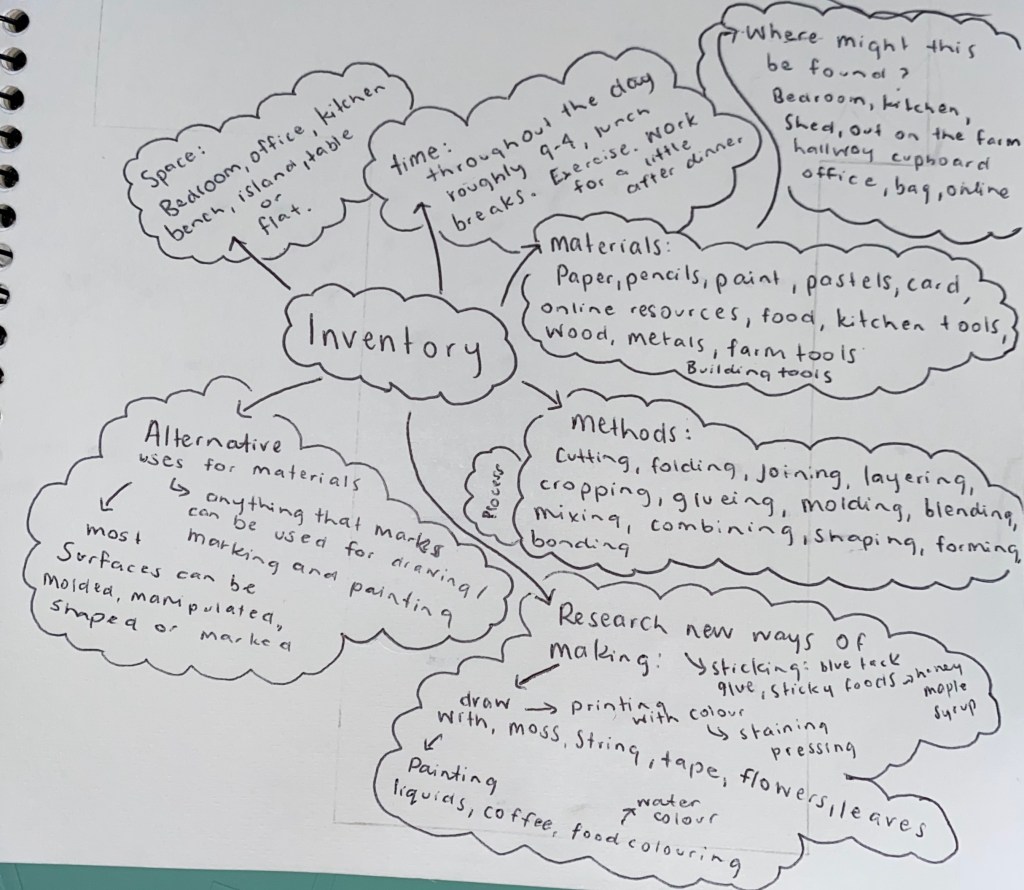 Inventory
Space:
Bedroom, office, kitchen
bench, island, table
or
flat.
time:
throughout the day
roughly 9-4, lunch
breaks. Exercise. Work
for a little
after dinner
Where might this
be found?
Bedroom, kitchen,
Shed, out on the farm
hallway cupboard
office, bag, online
Materials:
Paper, pencils, paint, pastels, card,
online resources, food, kitchen tools,
Wood, metals, farm tools
Building tools
Methods:
Process
Cutting, folding, joining, layering,
cropping, glueing, molding, blending,
mixing, combining, shaping, forming,
bonding
Alternative
uses for materials
↳ anything that marks
can be used for drawing,
marking and painting
most
Surfaces can be
molded, manipulated,
shaped or marked
Research new ways of
making: ↘ sticking: blue tack
glue, sticky foods → honey
maple
syrup
draw → printing
with colour
↳ staining
pressing
with, moss, String, tape, flowers, leaves
Painting
liquids, coffee, food colouring
water
colour